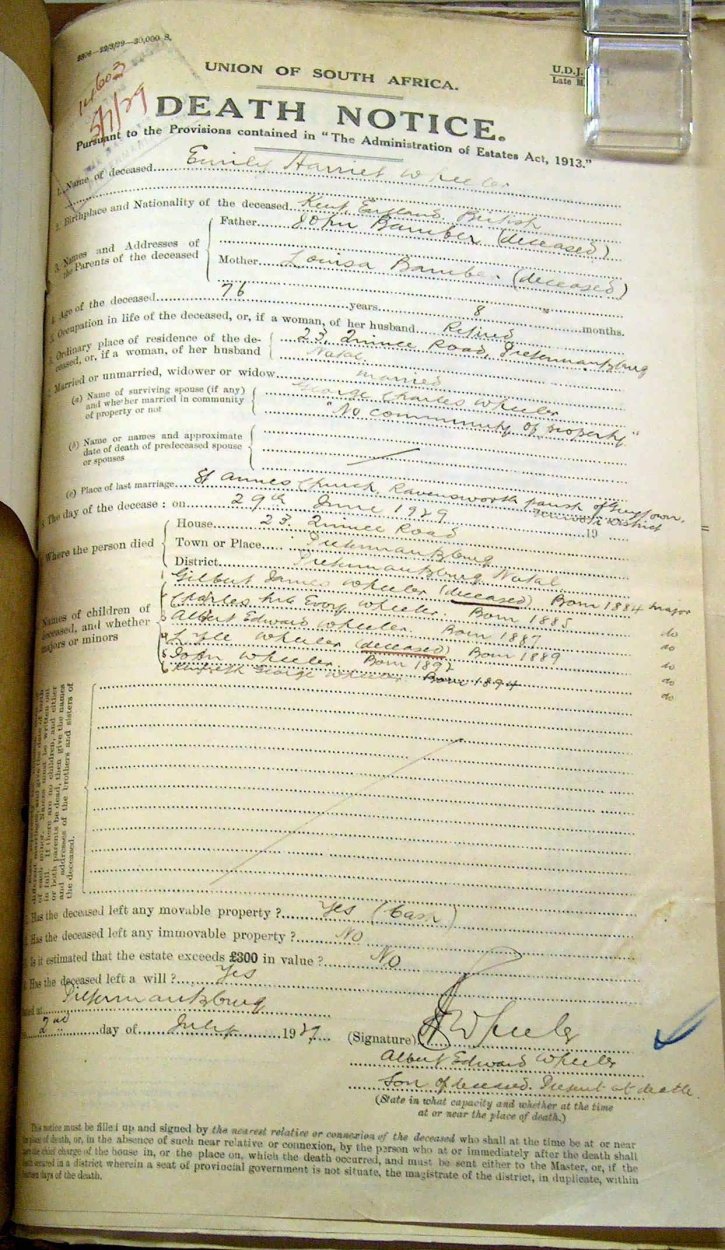 2306—22/3/29—30,000 S.
UNION OF SOUTH AFRICA.
U.D.J.
Late
14602
5/7/29
DEATH NOTICE.
Pursuant to the Provisions contained in "The Administration of Estates Act, 1913."
1. Name of deceased Emily Harriet Wheeler
2. Birthplace and Nationality of the deceased Kent, England, British
3. Names and Addresses of the Parents of the deceased
Father John Bamber (deceased)
Mother Louisa Bamber (deceased)
4. Age of the deceased 76 years 8 " months.
5. Occupation in life of the deceased, or, if a woman, of her husband Retired
6. Ordinary place of residence of the deceased, or, if a woman, of her husband
23, Road, Pietermaritzburg
Natal
7. Married or unmarried, widower or widow married
(a) Name of surviving spouse (if any) and whether married in community of property or not
George Charles Wheeler
"No community of property"
(b) Name or names and approximate date of death of predeceased spouse or spouses
(c) Place of last marriage St Annes Church, Ravensworth parish of Greytown,
District
8. The day of the decease: on 29th June 1929 19
Where the person died
House 23, Road
Town or Place Pietermaritzburg
District Pietermaritzburg Natal
Names of children of deceased, and whether majors or minors
1 Gilbert James Wheeler (deceased) Born 1884 major
Charles Wheeler. Born 1885 do
3 Albert Edward Wheeler. Born 1887 do
4 Wheeler (deceased) Born 1889 do
5 John Wheeler Born 1892 do
6 George Wheeler Born 1894 do
in full. If there are no children, and either
or both parents be dead, then give the names
and addresses of the brothers and sisters of
the deceased.
Has the deceased left any movable property? Yes (Cash)
Has the deceased left any immovable property? No
Is it estimated that the estate exceeds £300 in value? No
Has the deceased left a will? Yes
Dated at Pietermaritzburg
2nd day of July 1929
(Signature) Wheeler
Albert Edward Wheeler
Son of deceased. Present at death.
(State in what capacity and whether at the time
at or near the place of death.)
This notice must be filled up and signed by the nearest relative or connexion of the deceased who shall at the time be at or near
place of death, or, in the absence of such near relative or connexion, by the person who at or immediately after the death shall
have the chief charge of the house in, or the place on, which the death occurred, and must be sent either to the Master, or, if the
death occurred in a district wherein a seat of provincial government is not situate, the magistrate of the district, in duplicate, within
fourteen days of the death.